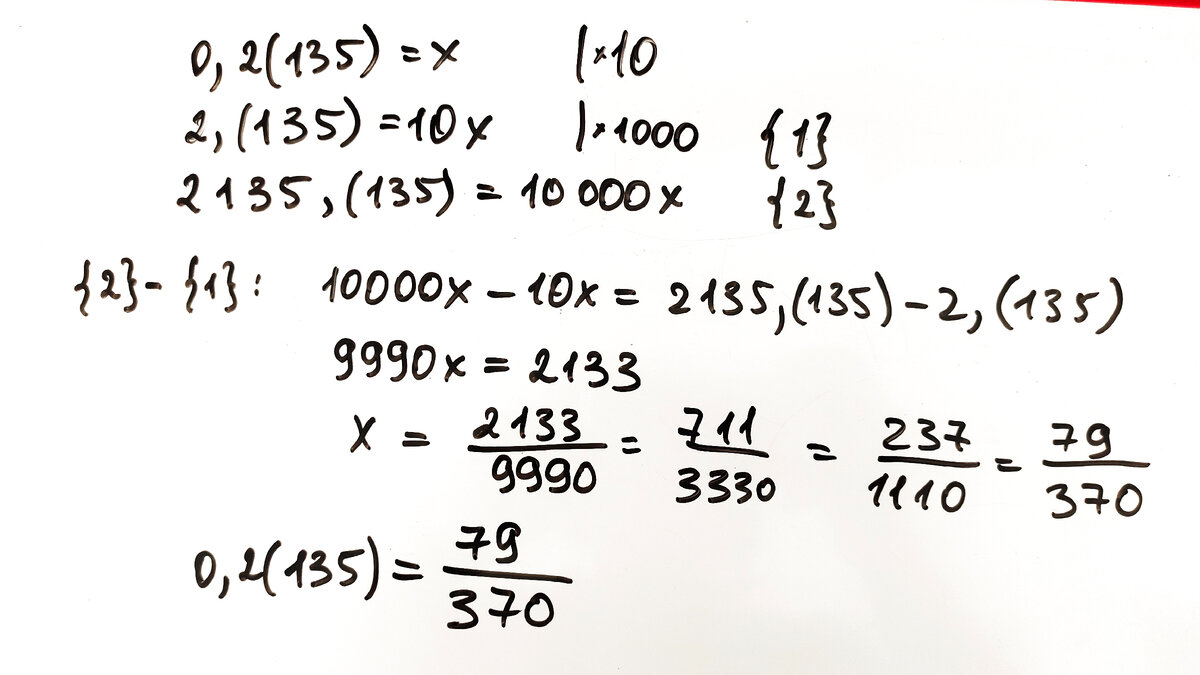 0,2(135) = x |×10
2,(135) = 10x |×1000 {1}
2135,(135) = 10 000x {2}
{2}-{1}: 10000x - 10x = 2135,(135) - 2,(135)
9990x = 2133
x = 2133/9990 = 711/3330 = 237/1110 = 79/370
0,2(135) = 79/370